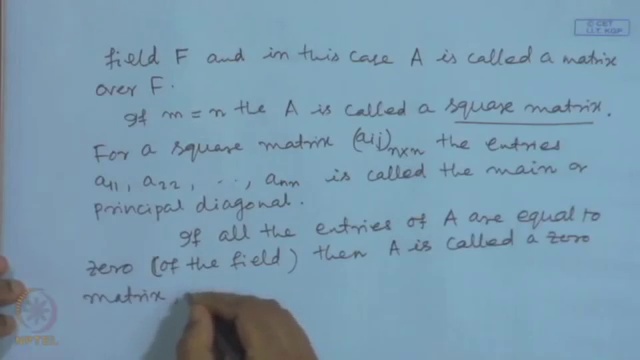 © CET
I.I.T. KGP
field F and in this case A is called a matrix
over F.
If m = n the A is called a square matrix.
For a square matrix (aij)n×n the entries
a11, a22, ..., ann is called the main or
principal diagonal.
If all the entries of A are equal to
zero (of the field) then A is called a zero
matrix
NPTEL